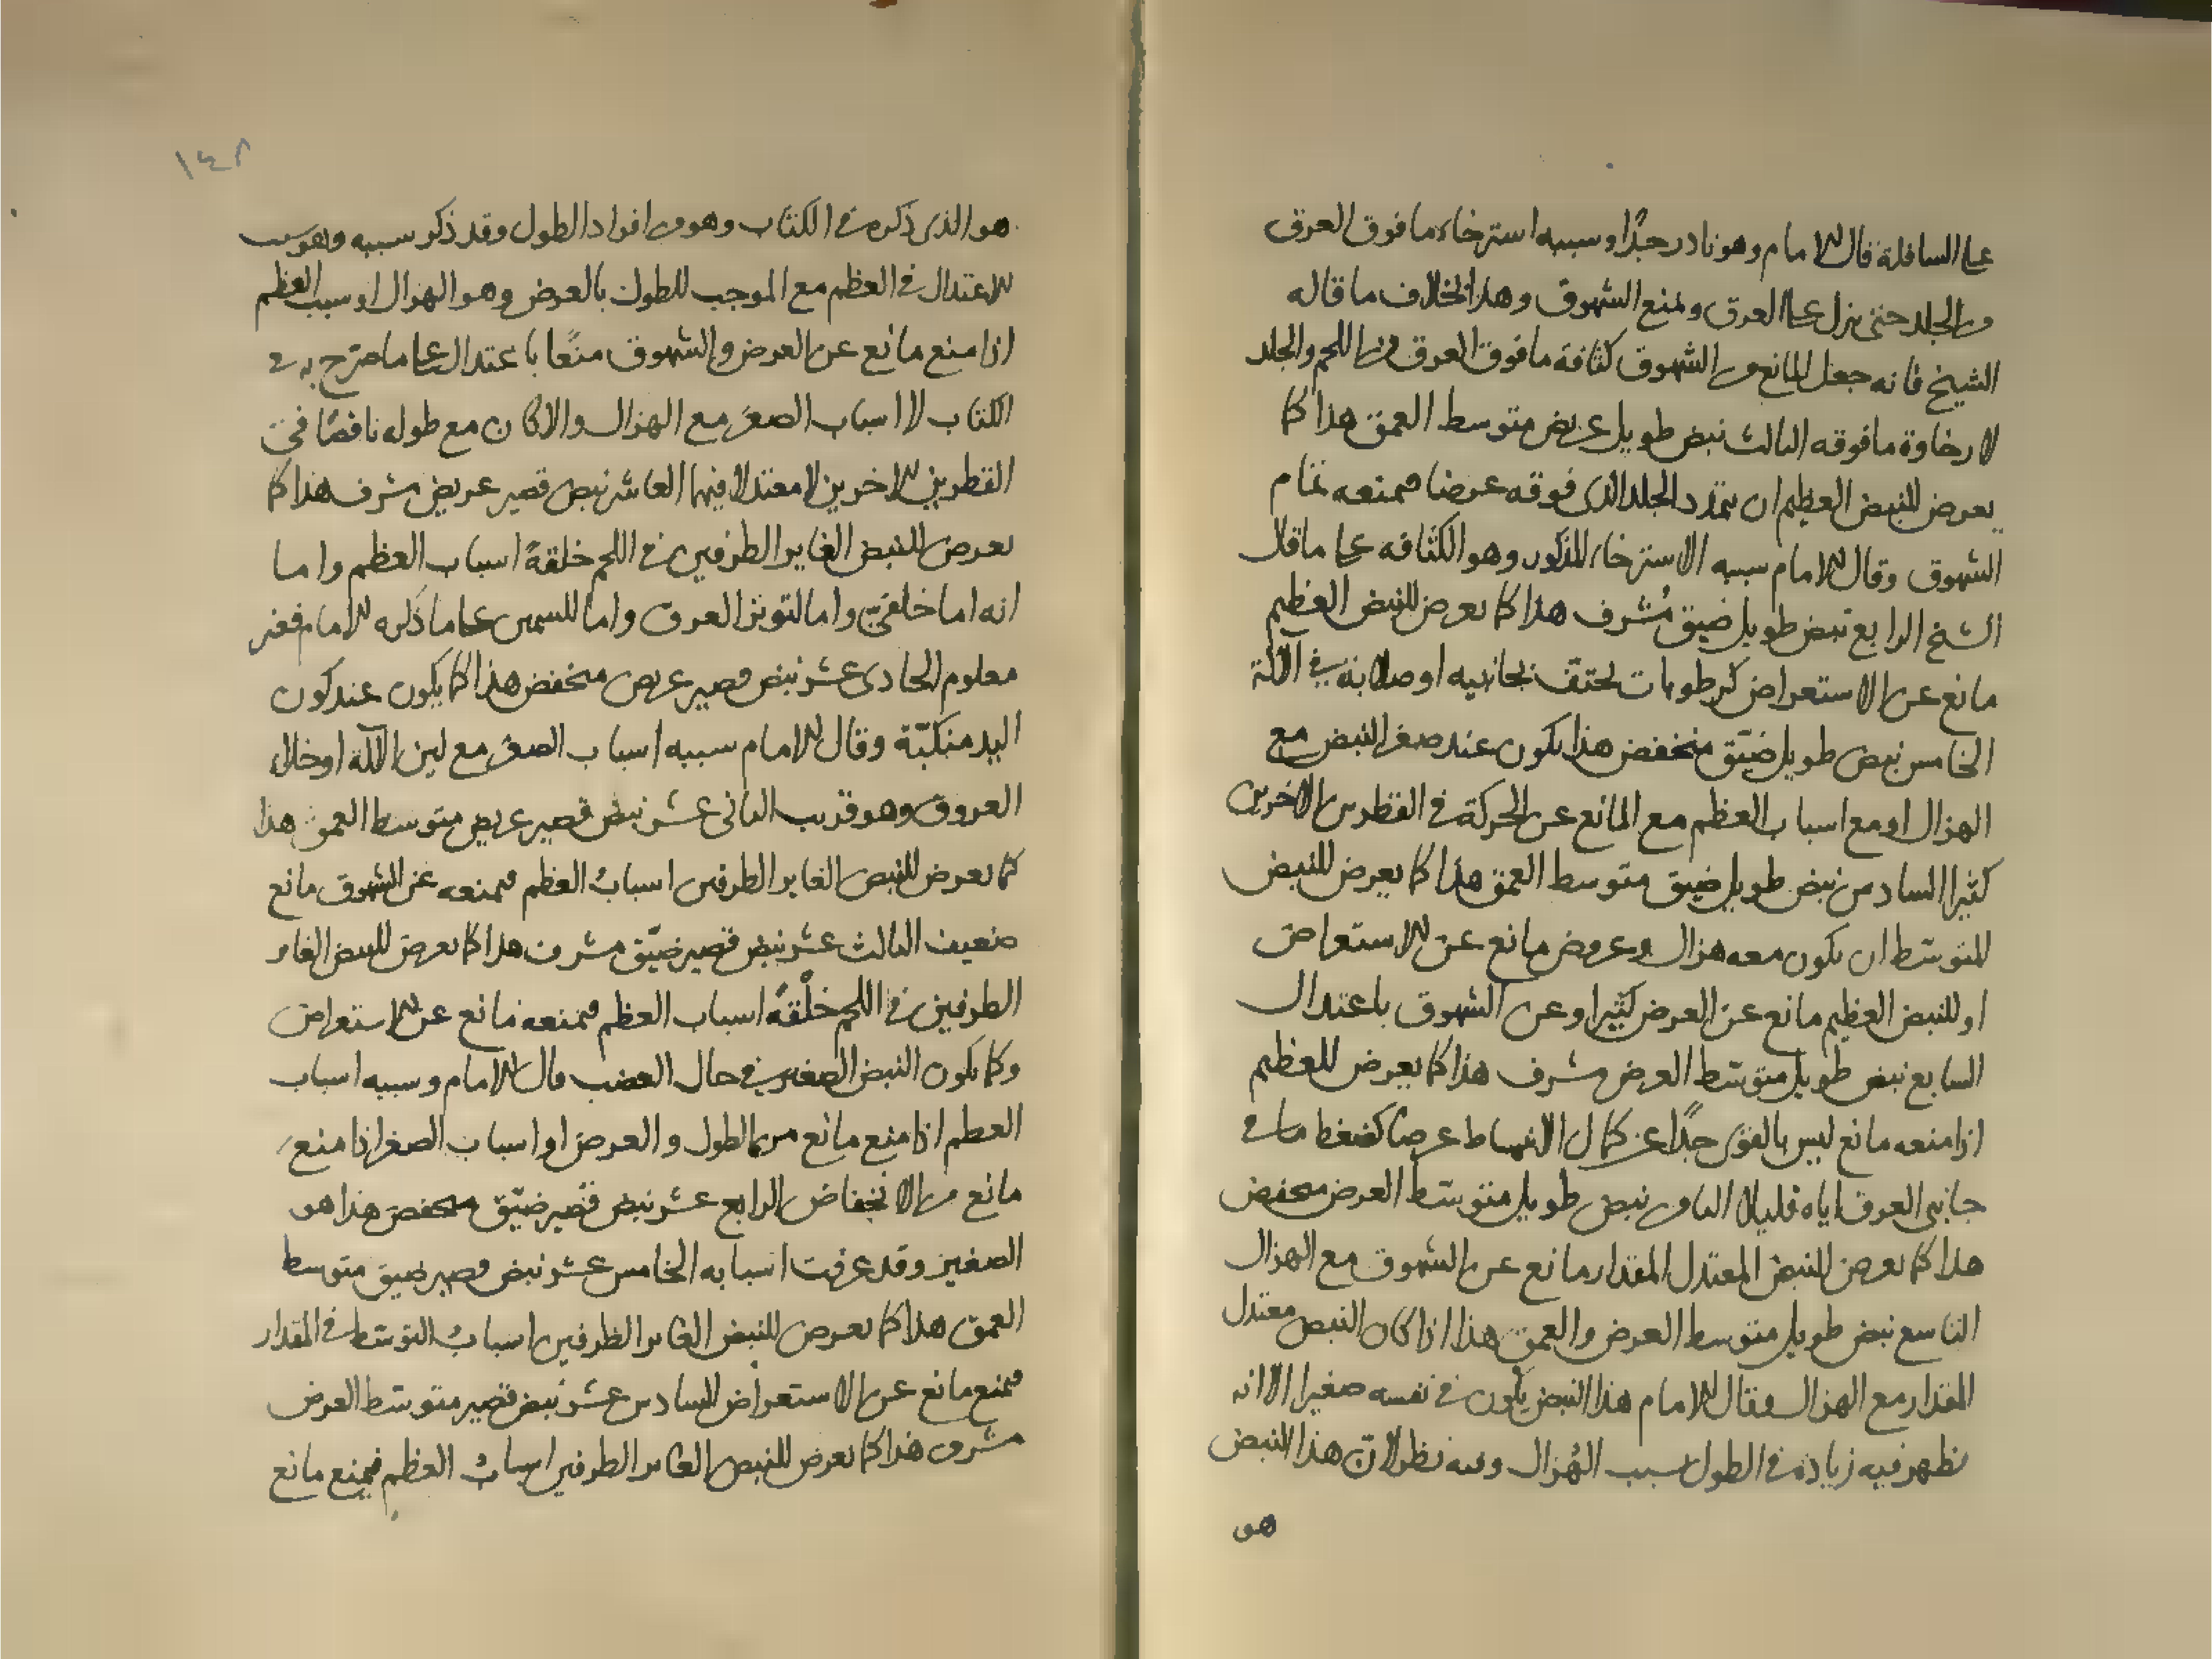 على السافلة قال الامام وهو نادر جدًا وسببه استرخاء ما فوق العرق
من الجلد حتى ينزل على العرق ويمنع الشهوق وهذا بخلاف ما قاله
الشيخ فانه جعل المانع من الشهوق كثافة ما فوق العرق من اللحم والجلد
لا رخاوة ما فوقه الثالث نبض طويل عريض متوسط العمق هذا كما
يعرض للنبض العظيم ان يتمدد الجلد الذى فوقه عرضا فمنعه تمام
الشهوق وقال الامام سببه الاسترخاء المذكور وهو الكثافه على ما قال
الشيخ الرابع نبض طويل ضيق مُشرف هذا كما يعرض للنبض العظيم
مانع عن الاستعراض كرطوبات تحتقن بجانبيه او صلابة في الآلة
الخامس نبض طويل ضيّق منخفض هذا يكون عند صغر النبض مع
الهزال او مع اسباب العظم مع المانع عن الحركة في القطرين الاخرين
كثيرا السادس نبض طويل ضيق متوسط العمق هذا كما يعرض للنبض
المتوسّط ان يكون معه هزال وعروض مانع عن الاستعراض
او للنبض العظيم مانع عن العرض كثيرا وعن الشهوق باعتدال
السابع نبض طويل متوسّط العرض مشرف هذا كما يعرض للعظيم
اذا منعه مانع ليس بالقوى جدًا عن كمال الانبساط عرضا كضغط ما في
جانبى العرق اياه قليلا الثامن نبض طويل متوسّط العرض منخفض
هذا كما يعرض للنبض المعتدل المقدار مانع عن الشهوق مع الهزال
التاسع نبض طويل متوسط العرض والعمق هذا اذا كان النبض معتدل
المقدار مع الهزال وقال الامام هذا النبض يكون في نفسه صغيرا الا انه
يظهر فيه زيادة في الطول بسبب الهُزال وفيه نظر لانّ هذا النبض
هو
١٤٨
هو الذى ذكره في الكتاب وهو من افراد الطول وقد ذكر سببه وهو سبب
الاعتدال في العظم مع الموجب للطول بالعرض وهو الهزال او سبب العظم
اذا منع مانع عن العرض والشهوق منعًا باعتدال على ما صرّح به في
الكتاب لا اسباب الصغر مع الهزال والا كان مع طوله ناقصًا في
القطرين الاخرين لا معتدلا فيهما العاشر نبض قصير عريض مشرف هذا كما
يعرض للنبض الغاير الطرفين في اللحم خلقةً اسباب العظم واما
انه اما خلقىّ واما لتوتر العرق واما للسمن على ما ذكره الامام فغير
معلوم الحادى عشر نبض قصير عريض منخفض هذا كما يكون عند كون
اليد منكبّة وقال الامام سببه اسباب الصغر مع لين الآلة او خلاء
العروق وهو قريب الثانى عشر نبض قصير عريض متوسط العمق هذا
كما يعرض للنبض الغاير الطرفين اسبابُ العظم فمنعه عن الشهوق مانع
ضعيف الثالث عشر نبض قصير ضيّق مشرف هذا كما يعرض للنبض الغاير
الطرفين في اللحم خلْقةً اسباب العظم فمنعه مانع عن الاستعراض
وكما يكون النبض الصغير في حال الغضب قال الامام وسببه اسباب
العظم اذا منع مانع من الطول والعرض او اسباب الصغر اذا منع
مانع من الانخفاض الرابع عشر نبض قصير ضيّق منخفض هذا هو
الصغير وقد عرفت اسبابه الخامس عشر نبض قصير ضيق متوسط
العمق هذا كما يعرض للنبض الغاير الطرفين اسبابُ التوسّط في المقدار
فمنع مانع عن الاستعراض السادس عشر نبض قصير متوسّط العرض
مشرف هذا كما يعرض للنبض الغاير الطرفين اسبابُ العظم فيمنع مانع